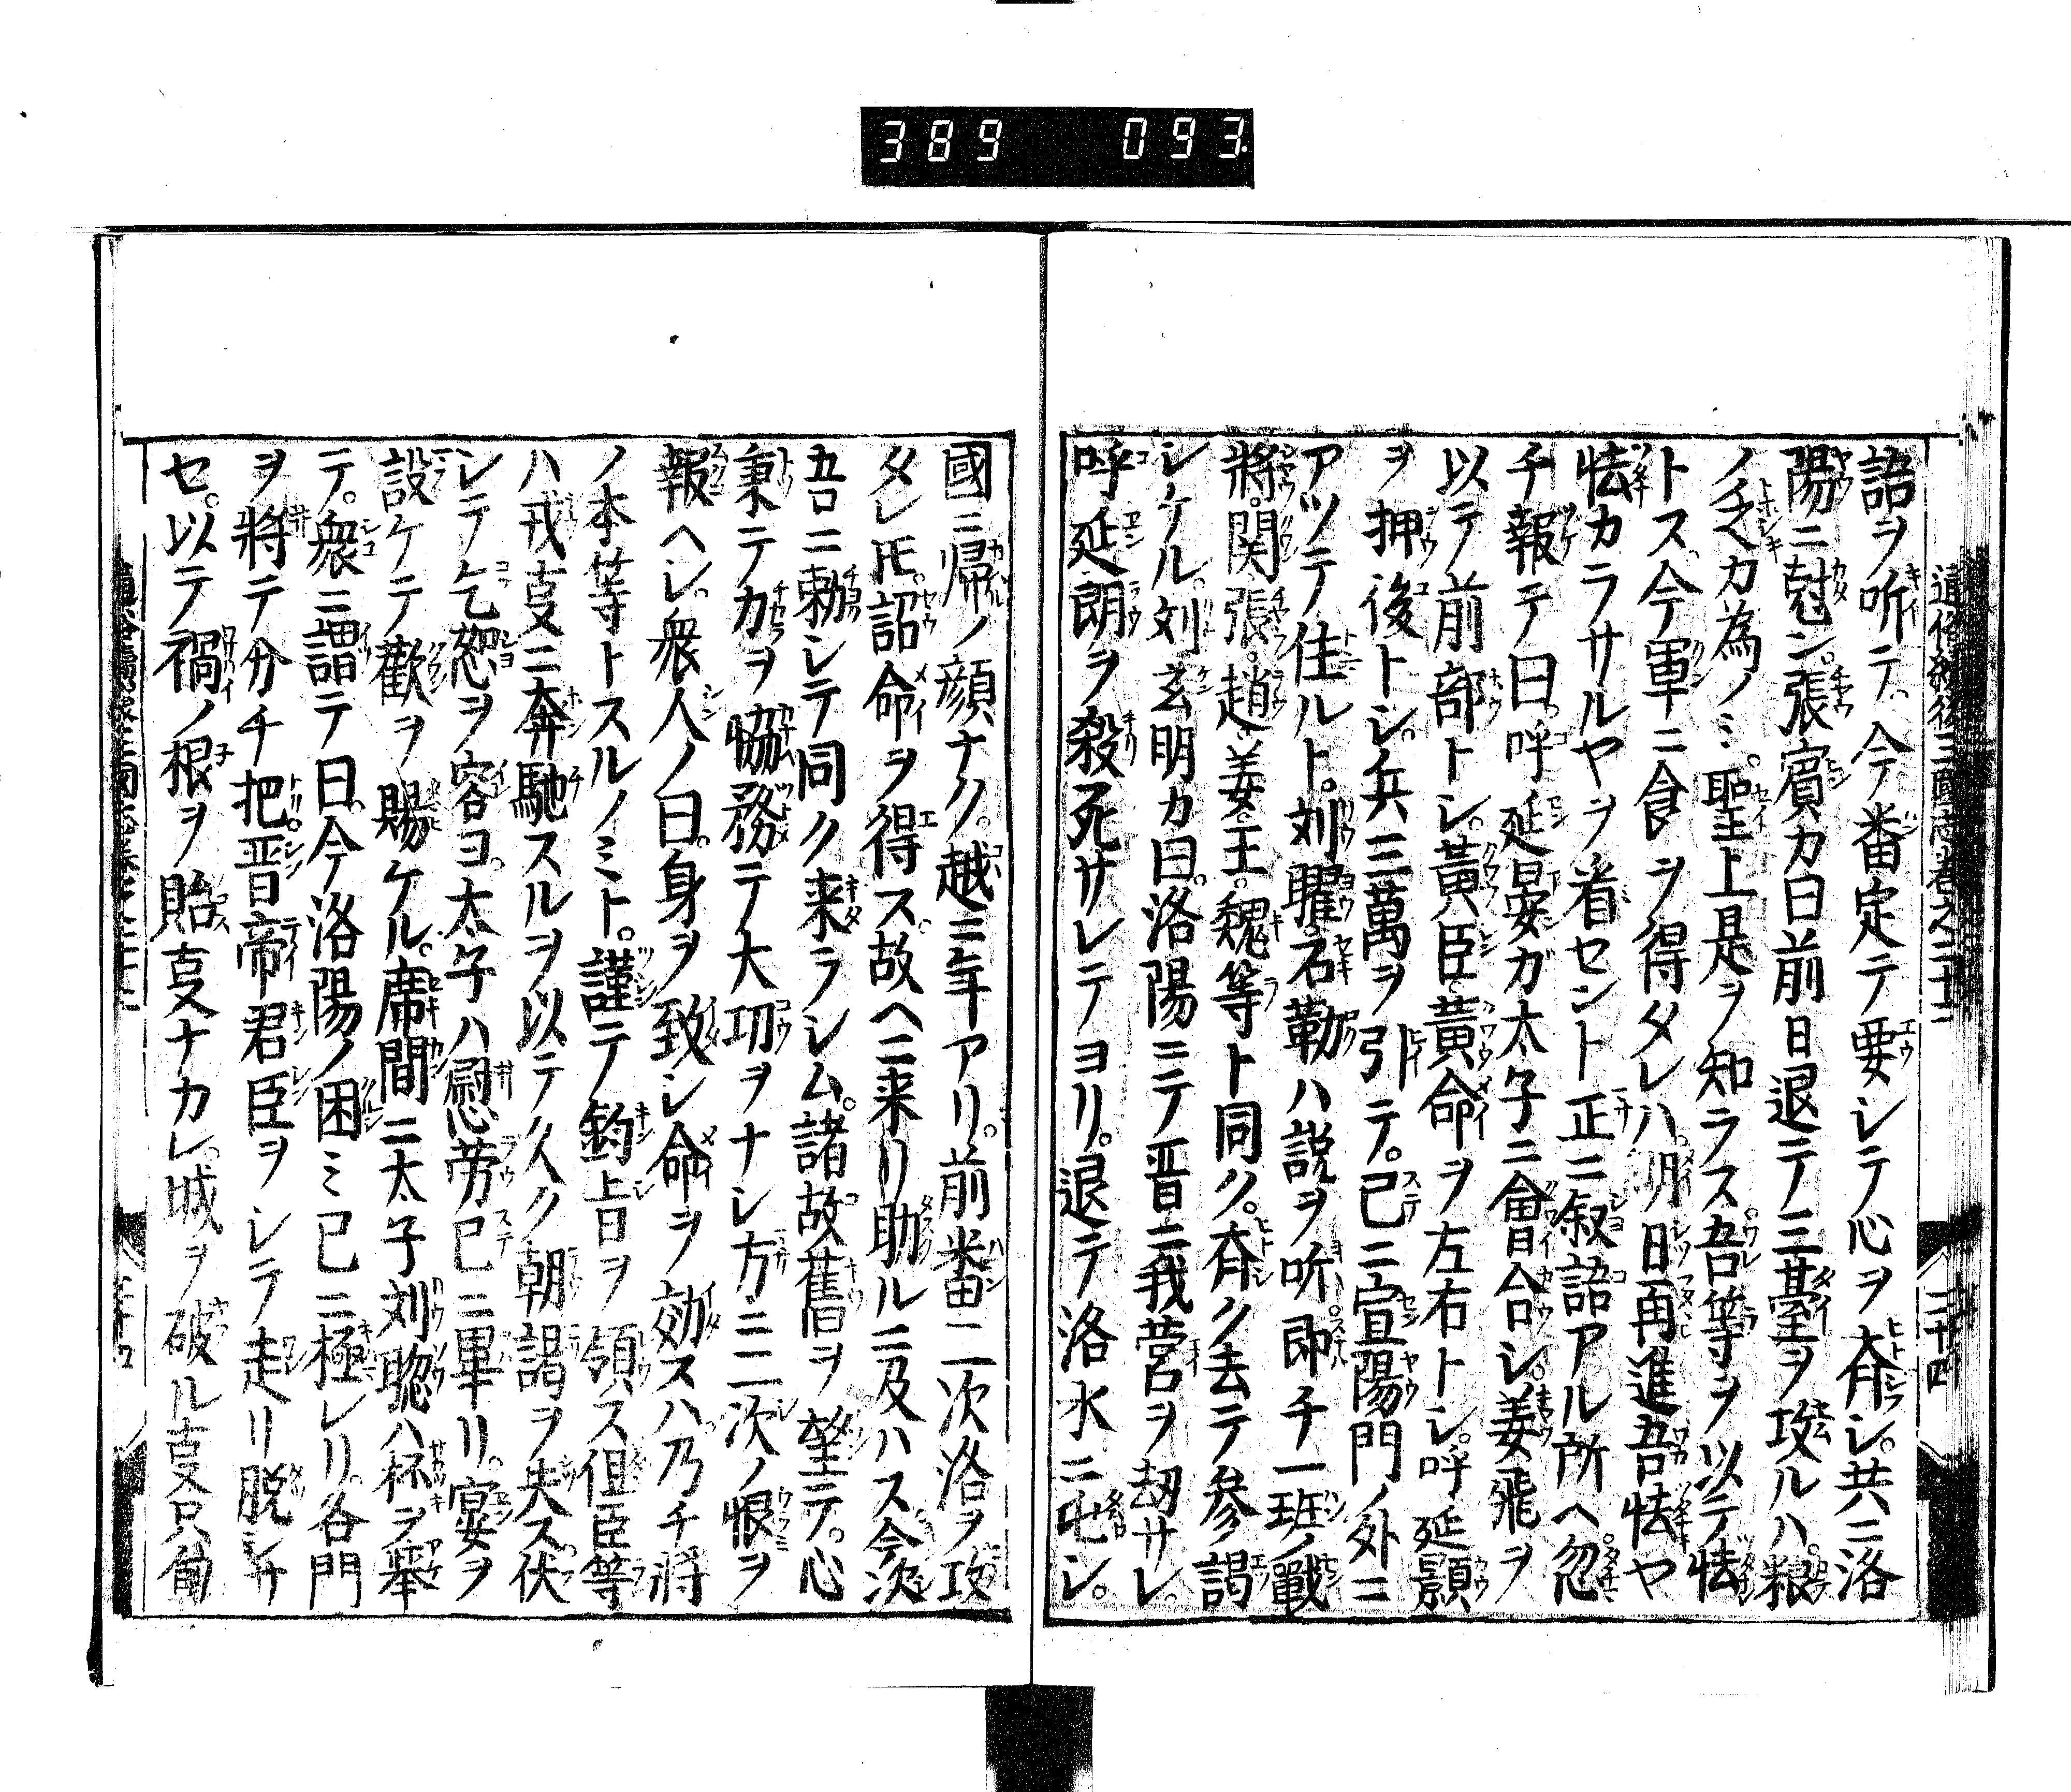 389 093
語ヲ听テ今番定テ要シテ心ヲ齊シ。共ニ洛
陽ニ尅ン。張賓カ曰前日退テ三臺ヲ攻ルハ。粮
ノ乏カ為ノミ。聖上是ヲ知ラス。吾等ヲ以テ怯
トス。今軍ニ食ヲ得タレハ。明日再進吾怯ヤ
怯カラサルヤヲ着セント正ニ叙語アル所ヘ。忽
チ報テ曰。呼延晏ガ太子ニ會合シ。姜飛ヲ
以テ前部トシ。黄臣黄命ヲ左右トシ。呼延顥
ヲ押後トシ。兵三萬ヲ引テ。已ニ宣陽門ノ外ニ
アツテ住ルト。刘曜石勒ハ説ヲ听。即チ一班ノ戰
將。関張。趙。姜。王。魏等ト同ク。齊ク去テ参謁
シケル。刘玄明カ曰。洛陽ニテ晋ニ我營ヲ刼サレ。
呼延朗ヲ殺死サレテヨリ。退テ洛水ニ屯シ。
國ニ帰ノ顔ナク。越ニ年アリ。前番二次洛ヲ攻
タレ𪜈。詔命ヲ得ス。故ヘニ来リ助ルニ及ハス今次
吾ニ勅シテ同ク来ラシム。諸故舊ヲ望テ。心
秉テカヲ協務テ大功ヲナシ方ニ二次ノ恨ヲ
報ヘシ。衆人ノ曰。身ヲ致シ命ヲ効スハ乃チ將
ノ本等トスルノミト。謹テ鈞旨ヲ領ス但臣等
ハ戎叓ニ奔馳スルヲ以テ久ク朝謁ヲ失ス伏
シテ乞恕ヲ容ヨ。太子ハ慰労已ニ畢リ。宴ヲ
設ケテ歡ヲ賜ケル。席間ニ太子刘聡ハ杯ヲ舉
テ。衆ニ謂テ曰。今洛陽ノ困ミ已ニ極レリ。各門
ヲ將テ分チ把。晋帝君臣ヲシテ走リ脱シサ
セ。以テ禍ノ根ヲ貽叓ナカレ。城ヲ破ル叓只旬